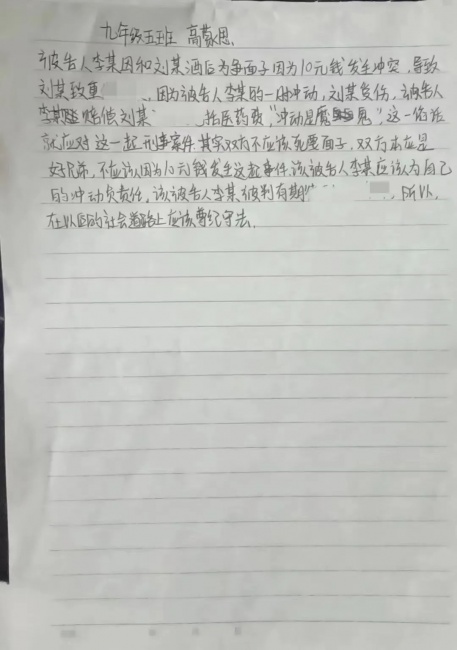 九年级五班 高蒙恩
被告人李某因和刘某酒后为争面子因为10元钱发生冲突,导致
刘某致重 ,因为被告人李某的一时冲动,刘某受伤,被告人
李某 赔偿刘某 性医药费“冲动是魔鬼”这一俗话
就应对这一起刑事案件其实双方不应该死要面子,双方本应是
好兄弟,不应该因为10元钱发生这起事件.该被告人李某应该为自己
的冲动负责任,该被告人李某被判有期 ,所以,
在以后的社会道路上应该遵纪守法.